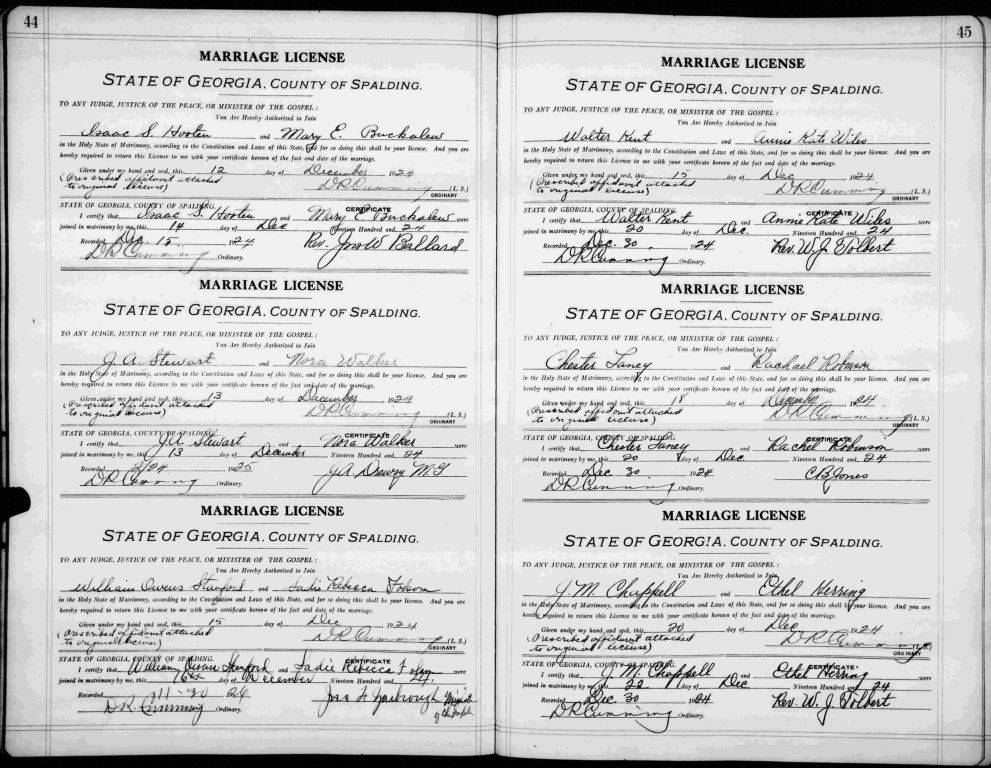 44
MARRIAGE LICENSE
STATE OF GEORGIA, COUNTY OF SPALDING.
TO ANY JUDGE, JUSTICE OF THE PEACE, OR MINISTER OF THE GOSPEL:
You Are Hereby Authorized to Join
Isaac S. Hooten and Mary E. Buckalew
in the Holy State of Matrimony, according to the Constitution and Laws of this State, and for so doing this shall be your license. And you are
hereby required to return this License to me with your certificate hereon of the fact and date of the marriage.
Given under my hand and seal, this 12 day of December 1924
(Prescribed affidavit attached
to original license) D R Cumming (L. S.)
ORDINARY
STATE OF GEORGIA, COUNTY OF SPALDING. CERTIFICATE
I certify that Isaac S. Hooten and Mary E Buckalew were
joined in matrimony by me, this 14 day of Dec Nineteen Hundred and 24
Recorded Dec 15 1924 Rev. Jno W Ballard
D R Cumming Ordinary.
MARRIAGE LICENSE
STATE OF GEORGIA, COUNTY OF SPALDING.
TO ANY JUDGE, JUSTICE OF THE PEACE, OR MINISTER OF THE GOSPEL:
You Are Hereby Authorized to Join
J. A. Stewart and Nora Walker
in the Holy State of Matrimony, according to the Constitution and Laws of this State, and for so doing this shall be your license. And you are
hereby required to return this License to me with your certificate hereon of the fact and date of the marriage.
Given under my hand and seal, this 13 day of December 1924
(Prescribed affidavit attached
to original license) D R Cumming (L. S.)
ORDINARY
STATE OF GEORGIA, COUNTY OF SPALDING. CERTIFICATE
I certify that J. A. Stewart and Nora Walker were
joined in matrimony by me, this 13 day of December Nineteen Hundred and 24
Recorded 1925 J. A. Drewry M. G
D R Cumming Ordinary.
MARRIAGE LICENSE
STATE OF GEORGIA, COUNTY OF SPALDING.
TO ANY JUDGE, JUSTICE OF THE PEACE, OR MINISTER OF THE GOSPEL:
You Are Hereby Authorized to Join
William Owens Stanford and Sadie Rebecca Folsom
in the Holy State of Matrimony, according to the Constitution and Laws of this State, and for so doing this shall be your license. And you are
hereby required to return this License to me with your certificate hereon of the fact and date of the marriage.
Given under my hand and seal, this 15 day of Dec 1924
(Prescribed affidavit attached
to original license) D R Cumming (L. S.)
ORDINARY
STATE OF GEORGIA, COUNTY OF SPALDING. CERTIFICATE
I certify that William Owens Stanford and Sadie Rebecca were
joined in matrimony by me, this 16th day of December Nineteen Hundred and
Recorded 11-30 26 Jno F Yarbrough
D R Cumming Ordinary.
45
MARRIAGE LICENSE
STATE OF GEORGIA, COUNTY OF SPALDING.
TO ANY JUDGE, JUSTICE OF THE PEACE, OR MINISTER OF THE GOSPEL:
You Are Hereby Authorized to Join
Walter Kent and Annie Kate Wiles
in the Holy State of Matrimony, according to the Constitution and Laws of this State, and for so doing this shall be your license. And you are
hereby required to return this License to me with your certificate hereon of the fact and date of the marriage.
Given under my hand and seal, this 15 day of Dec 1924
(Prescribed affidavit attached
to original license) D R Cumming (L. S.)
ORDINARY
STATE OF GEORGIA, COUNTY OF SPALDING. CERTIFICATE
I certify that Walter Kent and Annie Kate Wiles were
joined in matrimony by me, this 20 day of Dec. Nineteen Hundred and 24
Recorded Dec. 30 1924 Rev. W. J. Tolbert
D R Cumming Ordinary.
MARRIAGE LICENSE
STATE OF GEORGIA, COUNTY OF SPALDING.
TO ANY JUDGE, JUSTICE OF THE PEACE, OR MINISTER OF THE GOSPEL:
You Are Hereby Authorized to Join
Chester Laney and Rachael Robinson
in the Holy State of Matrimony, according to the Constitution and Laws of this State, and for so doing this shall be your license. And you are
hereby required to return this License to me with your certificate hereon of the fact and date of the marriage.
Given under my hand and seal, this 18 day of December 1924
(Prescribed affidavit attached
to original license) D R Cumming (L. S.)
ORDINARY
STATE OF GEORGIA, COUNTY OF SPALDING. CERTIFICATE
I certify that Chester Laney and Rachel Robinson were
joined in matrimony by me, this 20 day of Dec Nineteen Hundred and 24
Recorded Dec 30 1924 C B Jones
D R Cumming Ordinary.
MARRIAGE LICENSE
STATE OF GEORGIA, COUNTY OF SPALDING.
TO ANY JUDGE, JUSTICE OF THE PEACE, OR MINISTER OF THE GOSPEL:
You Are Hereby Authorized to Join
J. M. Chappell and Ethel Herring
in the Holy State of Matrimony, according to the Constitution and Laws of this State, and for so doing this shall be your license. And you are
hereby required to return this License to me with your certificate hereon of the fact and date of the marriage.
Given under my hand and seal, this 20 day of Dec 1924
(Prescribed affidavit attached
to original license) D R Cumming (L. S.)
ORDINARY
STATE OF GEORGIA, COUNTY OF SPALDING. CERTIFICATE
I certify that J. M. Chappell and Ethel Herring were
joined in matrimony by me, this 22 day of Dec Nineteen Hundred and 24
Recorded Dec 30 1924 Rev. W. J. Tolbert
D R Cumming Ordinary.